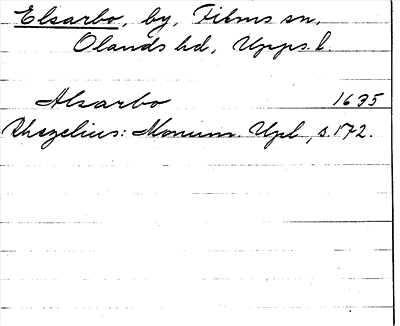 Elsarbo, by, Films sn,
Olands hd, Upps. l.
Alsarbo 1635
Rhezelius: Monum. Upl., s. 172.